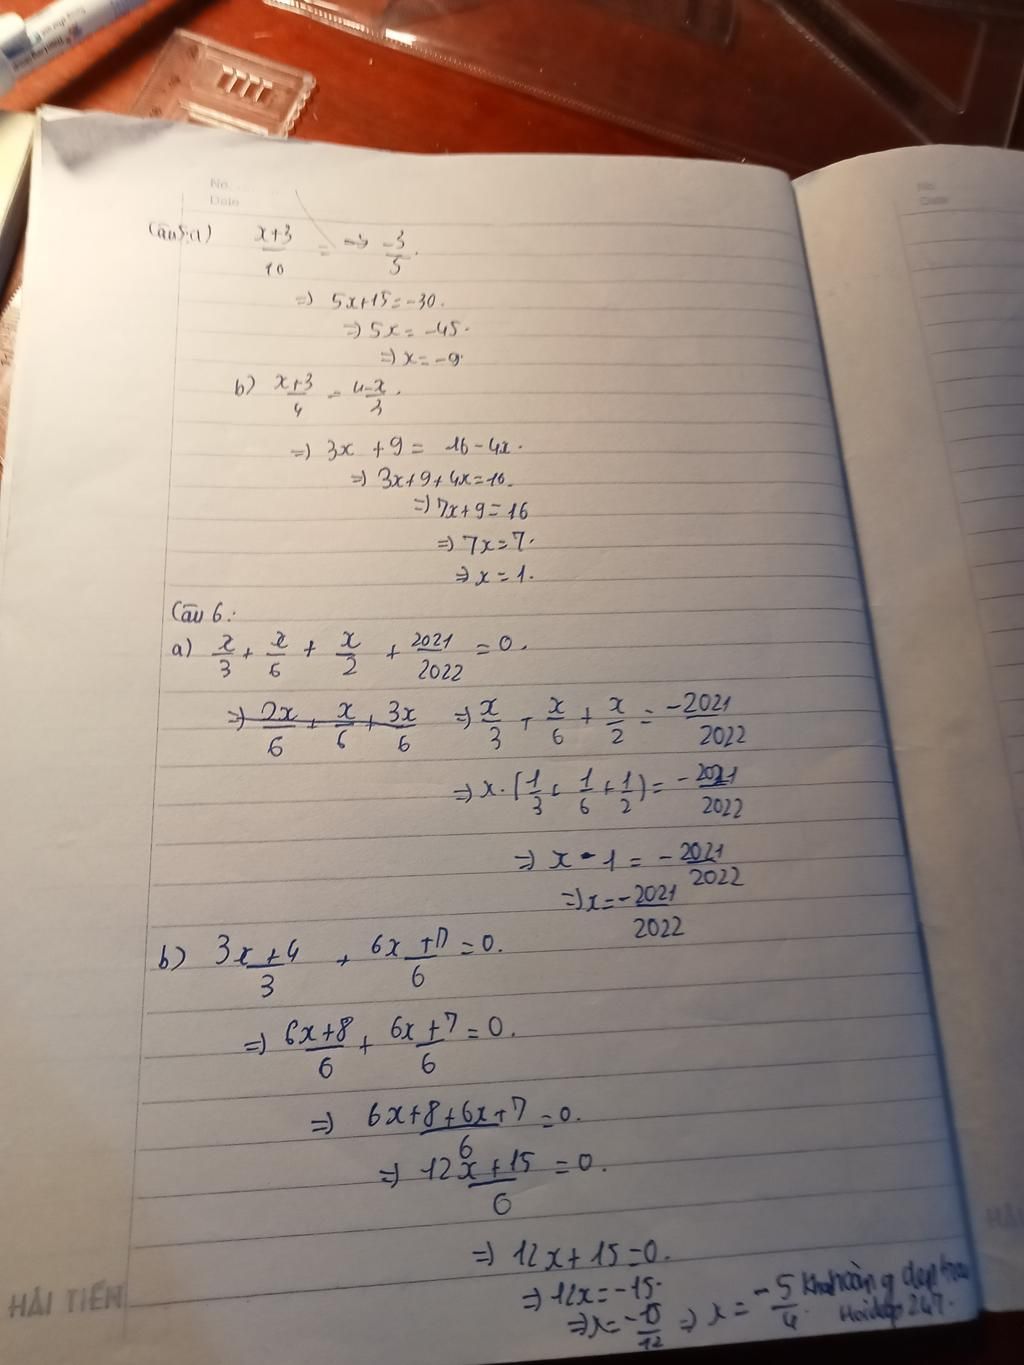 No.
Date
Câu 5: a) x+3/10 = => -3/5.
=> 5x+15=-30.
=> 5x = -45.
=> x = -9.
b) x+3/4 = 4-x/3.
=> 3x + 9 = 16-4x.
=> 3x+9+4x=16.
=> 7x+9=16
=> 7x=7.
=> x=1.
Câu 6:
a) x/3 + x/6 + x/2 + 2021/2022 = 0.
=> 2x/6 + x/6 + 3x/6 => x/3 + x/6 + x/2 = -2021/2022
=> x.(1/3 + 1/6 + 1/2) = -2021/2022
=> x - 1 = -2021/2022
=> x = -2021/2022
b) 3x+4/3 + 6x+7/6 = 0.
=> 6x+8/6 + 6x+7/6 = 0.
=> 6x+8+6x+7/6 = 0.
=> 12x+15/6 = 0.
=> 12x+15=0.
=> 12x=-15.
=> x = -15/12 => x = -5/4.
Hoidap 247.
HẢI TIẾN
No.
Date